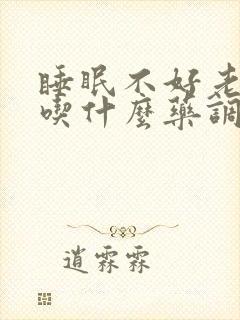 睡眠不好老
喫什麼藥調
逍霖霖